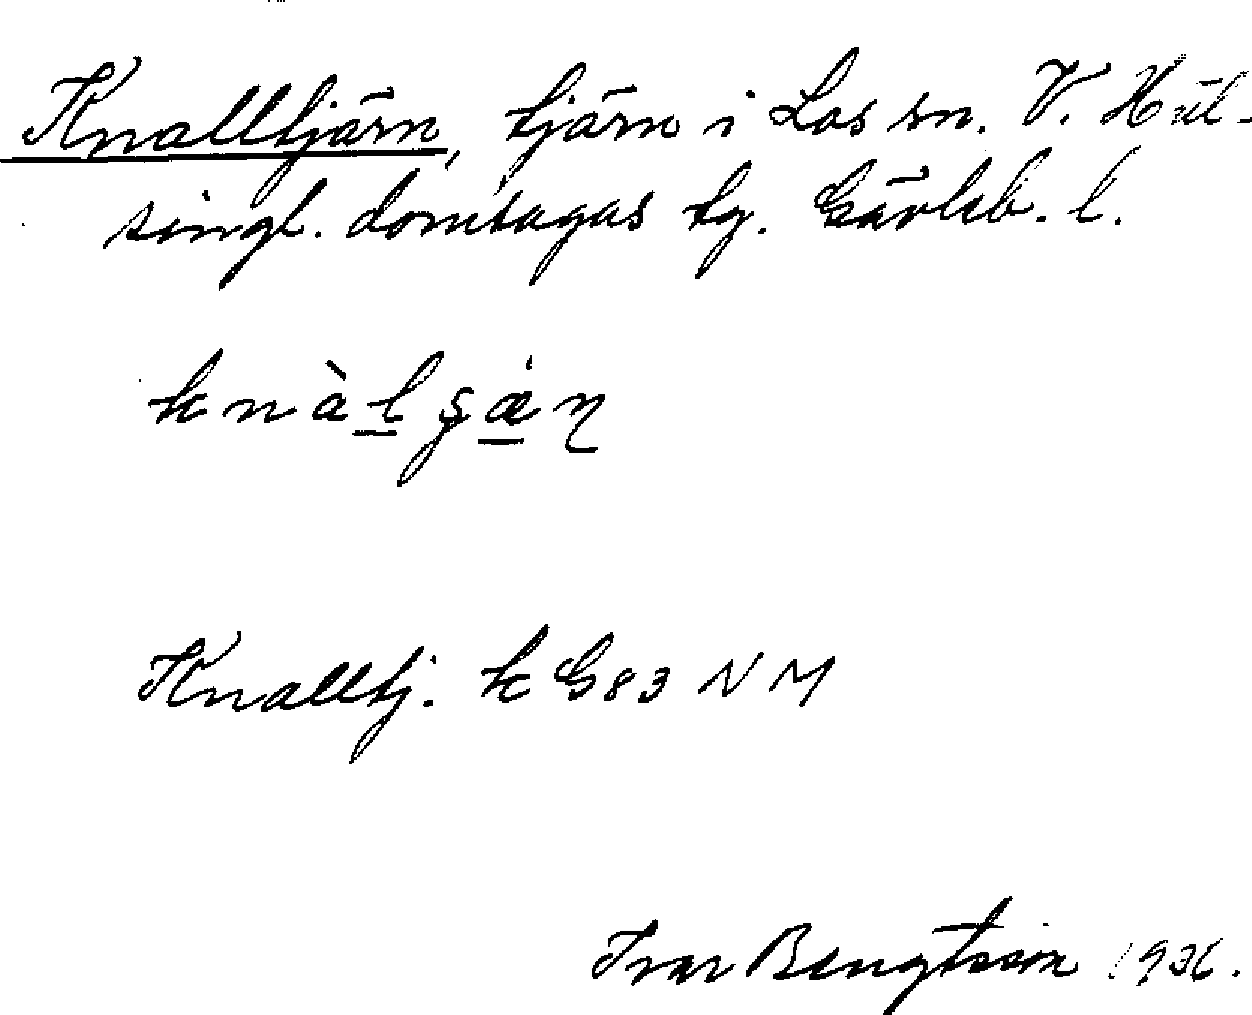 Knalltjärn, tjärn i Los sn. V. Häl-
singl. domsagas tg. Gävleb. l.
knàlʂæ̀ɳ
Knalltj. k G83 NM
Ivar Bengtsson 1936.